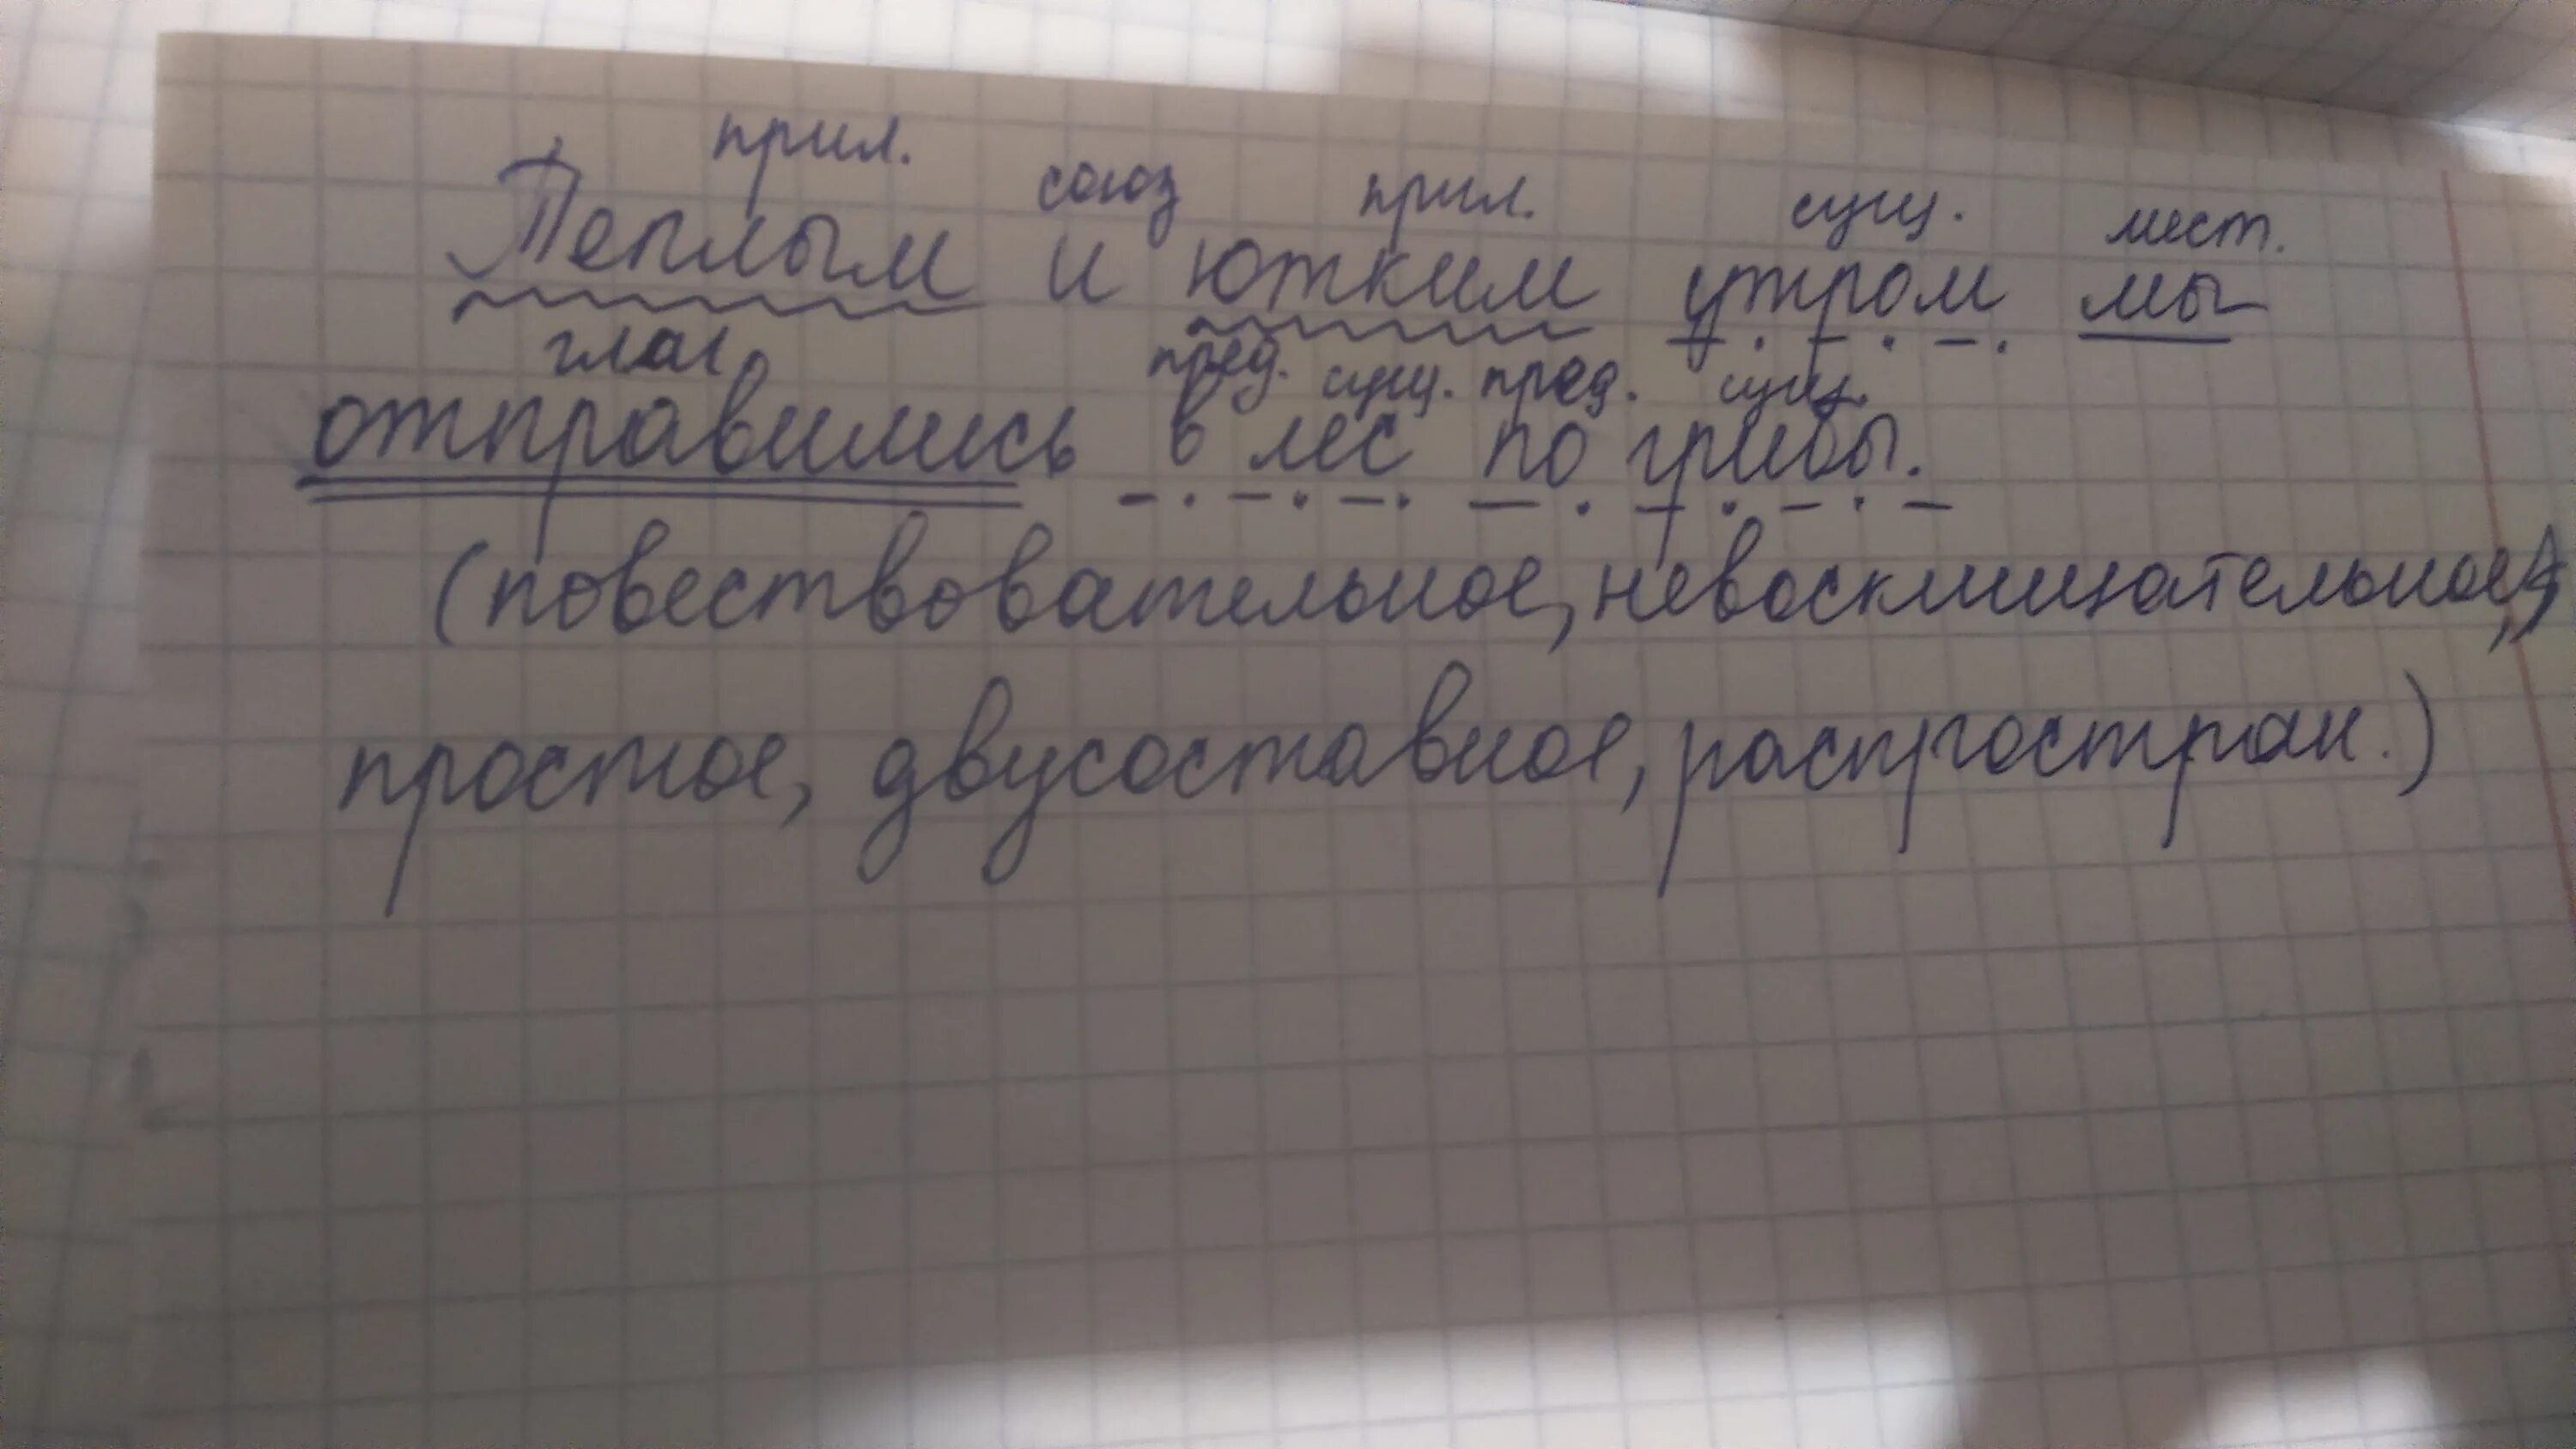 прил. союз прил. сущ. мест.
Теплым и ютким утром мы
глаг пред. сущ. пред. сущ.
отправились в лес по грибы.
(повествовательное, невосклицательное,
простое, двусоставное, распростран.)